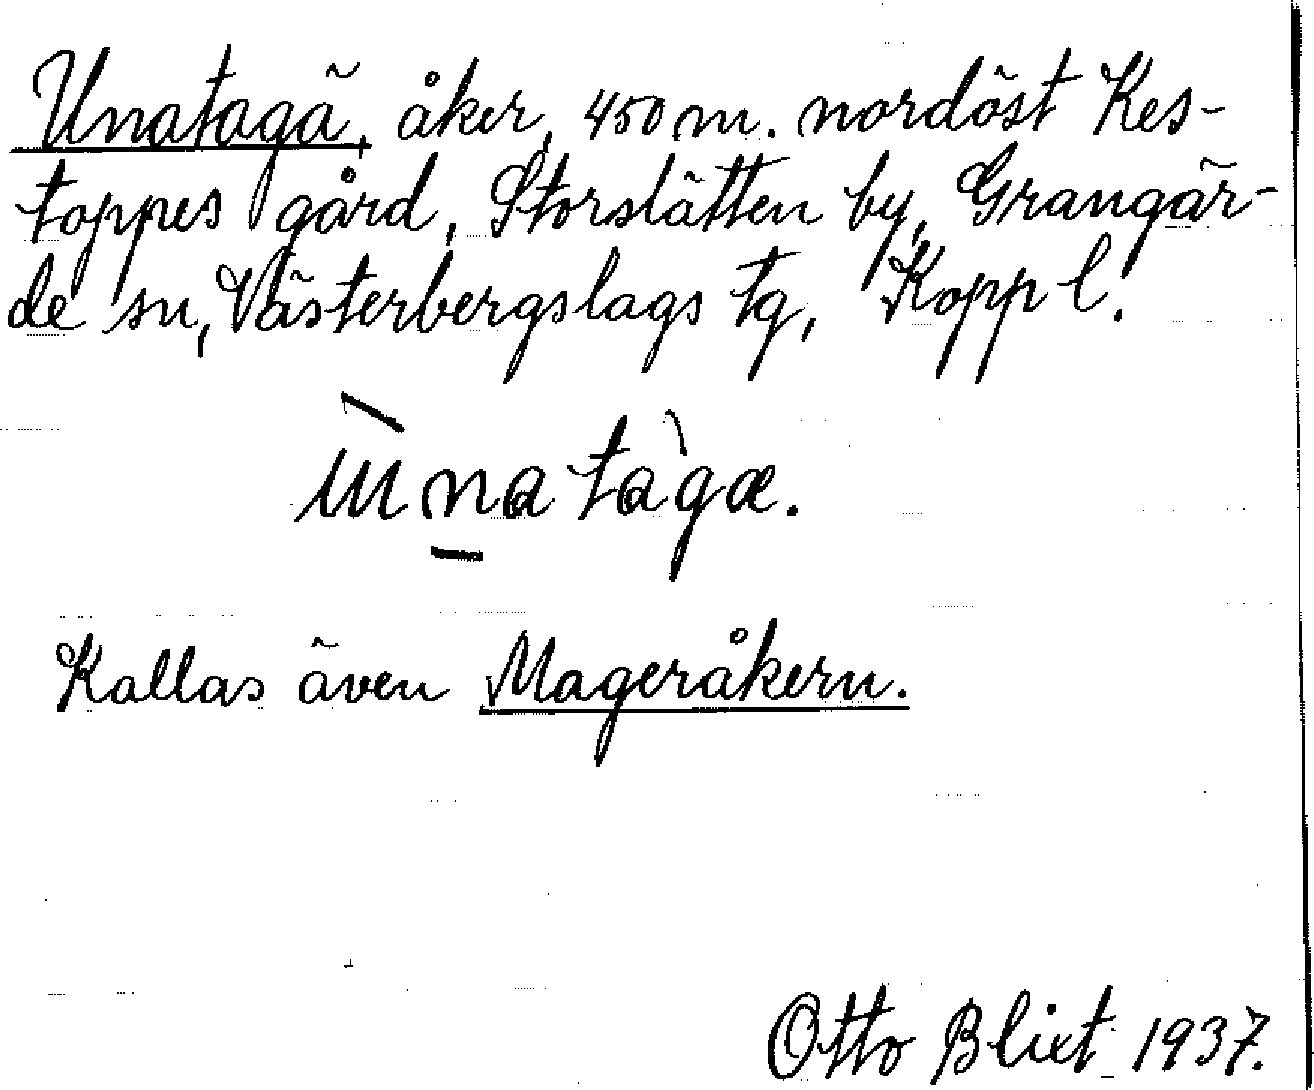 Unatagä, åker, 450 m. nordöst Kes-
toppes gård, Storslätten by, Grangär-
de sn, Västerbergslags tg, Kopp l.
ùnatàgæ.
Kallas även Mageråkern.
Otto Blixt 1937.